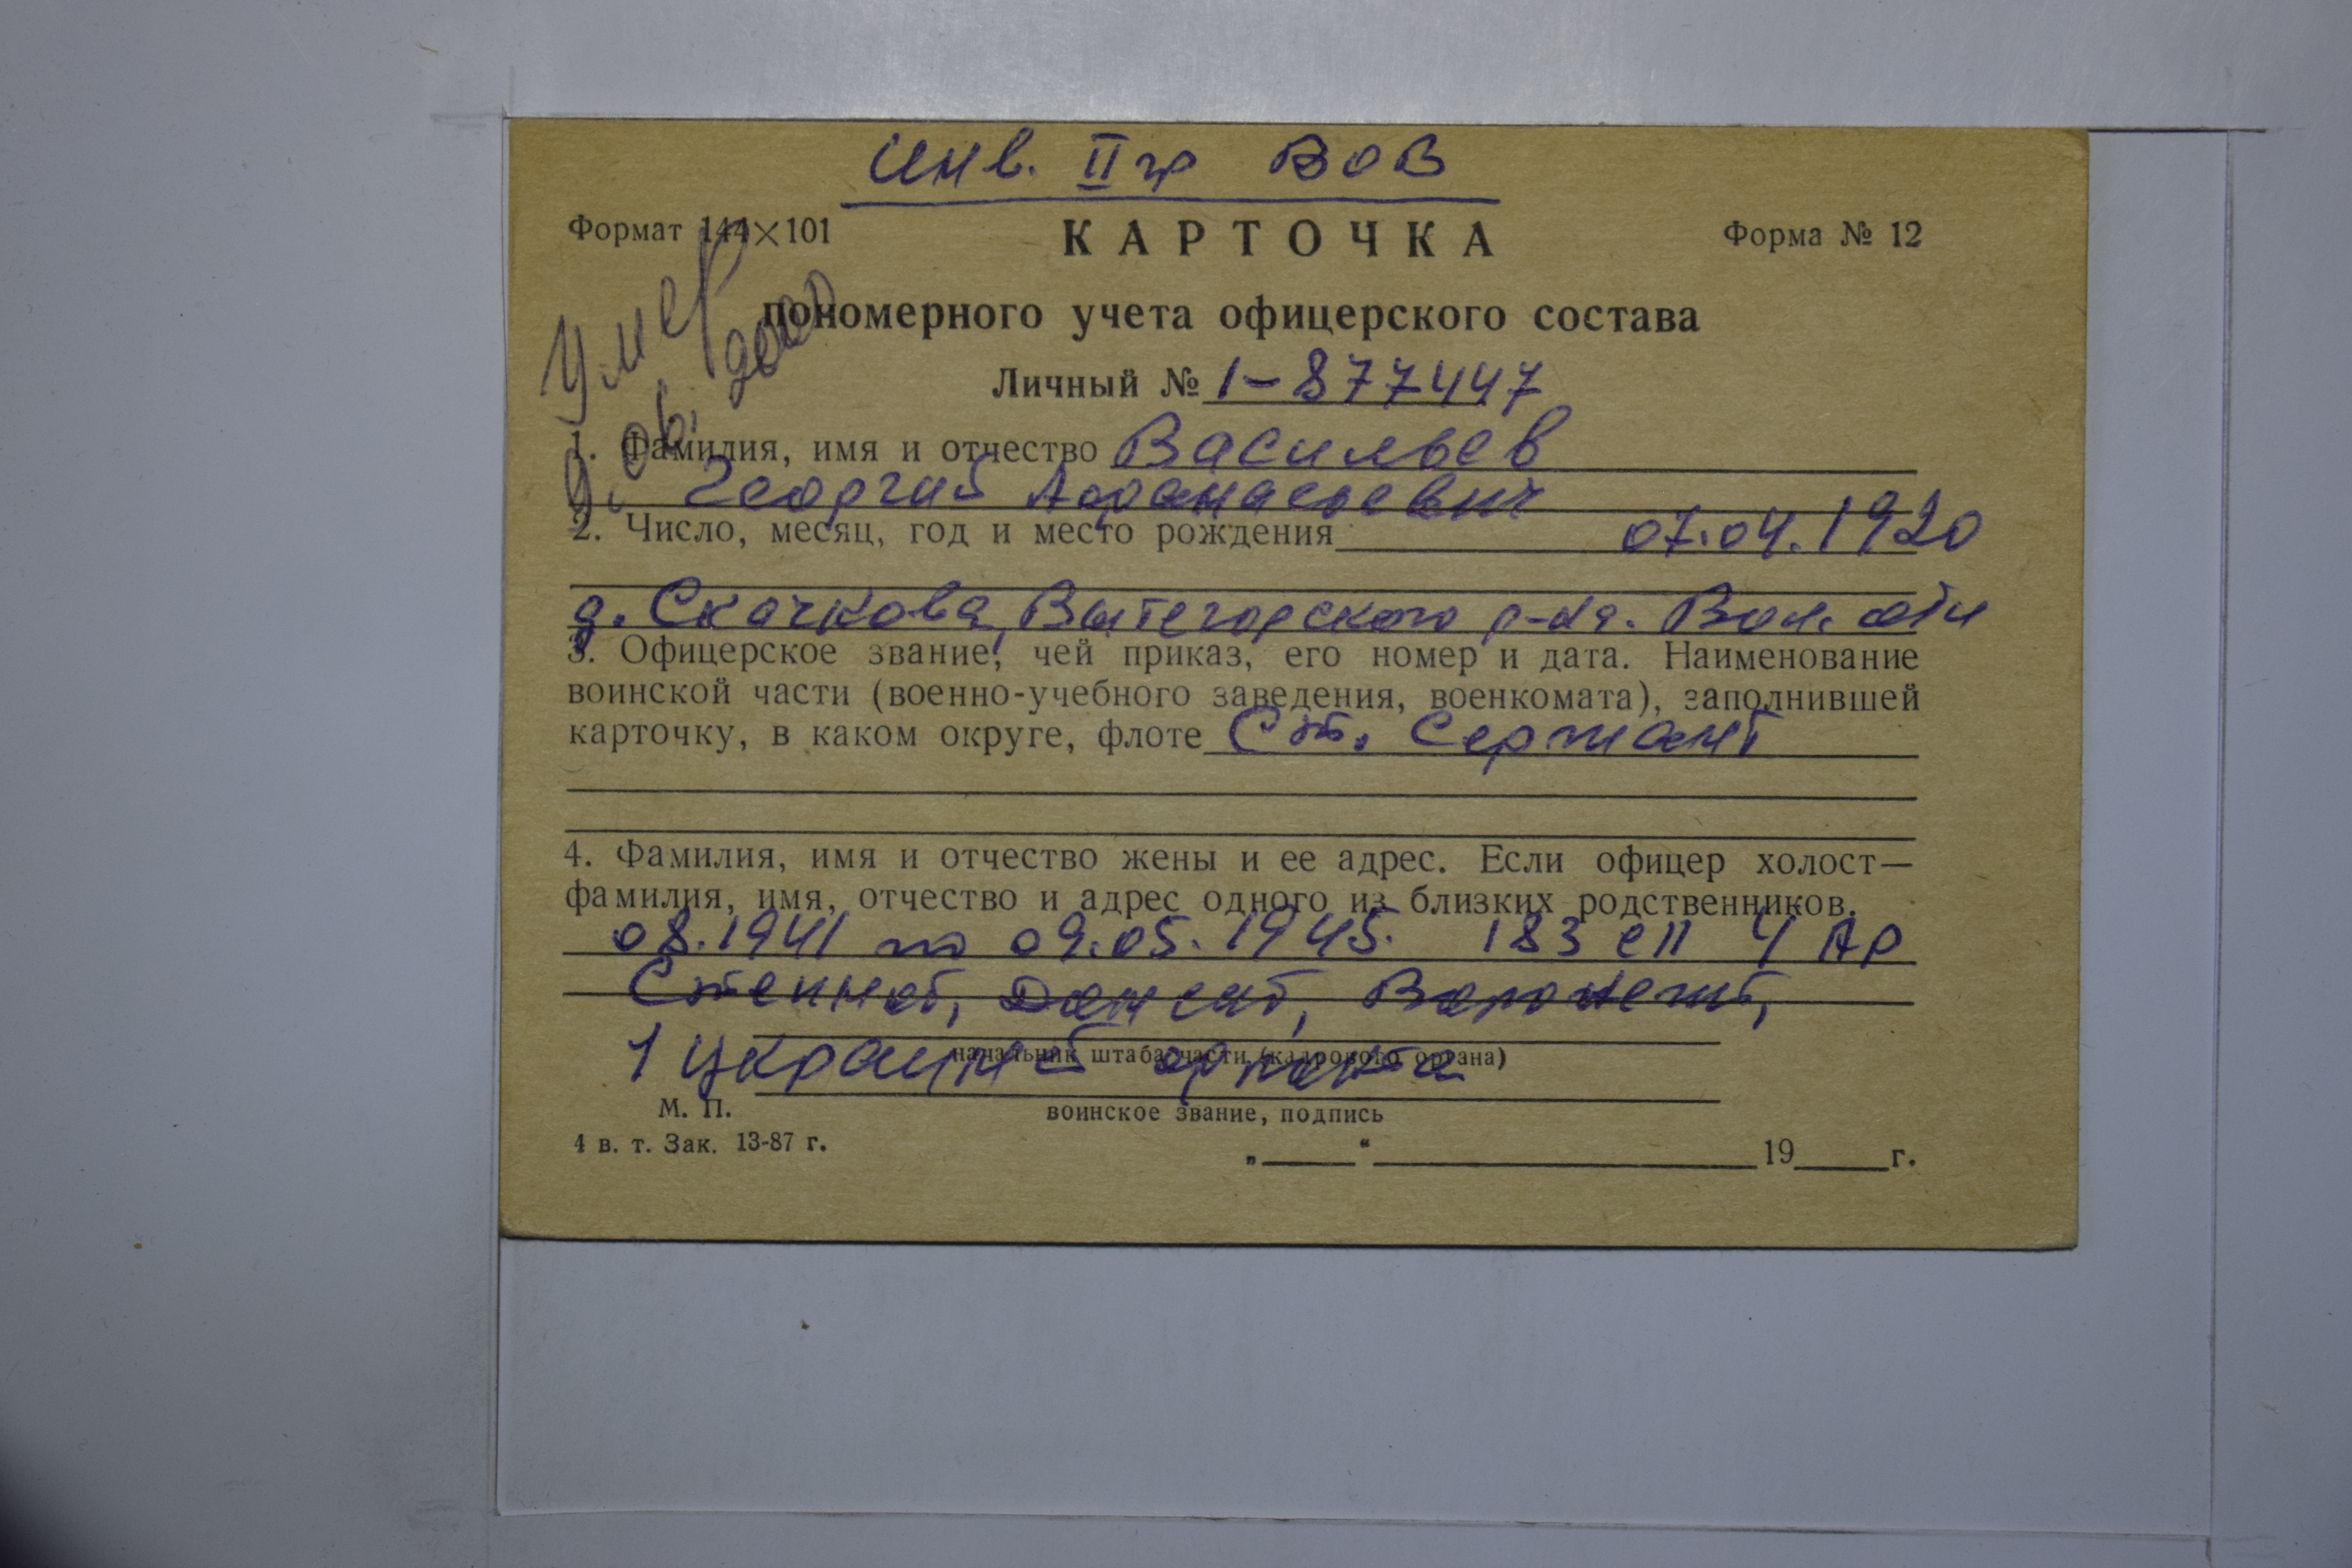 Инв. II гр ВОВ
Формат 144×101
КАРТОЧКА
Форма № 12
Умер
06. 2000
пономерного учета офицерского состава
Личный № 1-877447
1. Фамилия, имя и отчество Васильев
Георгий Афанасьевич
2. Число, месяц, год и место рождения 07.04.1920
д. Скачкова, Вытегорского р-на. Вол. обл
3. Офицерское звание, чей приказ, его номер и дата. Наименование
воинской части (военно-учебного заведения, военкомата), заполнившей
карточку, в каком округе, флоте Ст. Сержант
4. Фамилия, имя и отчество жены и ее адрес. Если офицер холост—
фамилия, имя, отчество и адрес одного из близких родственников.
08.1941 по 09.05.1945. 183 сп
Степной, Донской, Воронежский,
1 Украинский фронта
начальник штаба части (кадрового органа)
М. П.
воинское звание, подпись
4 в. т. Зак. 13-87 г.
„ “ 19 г.